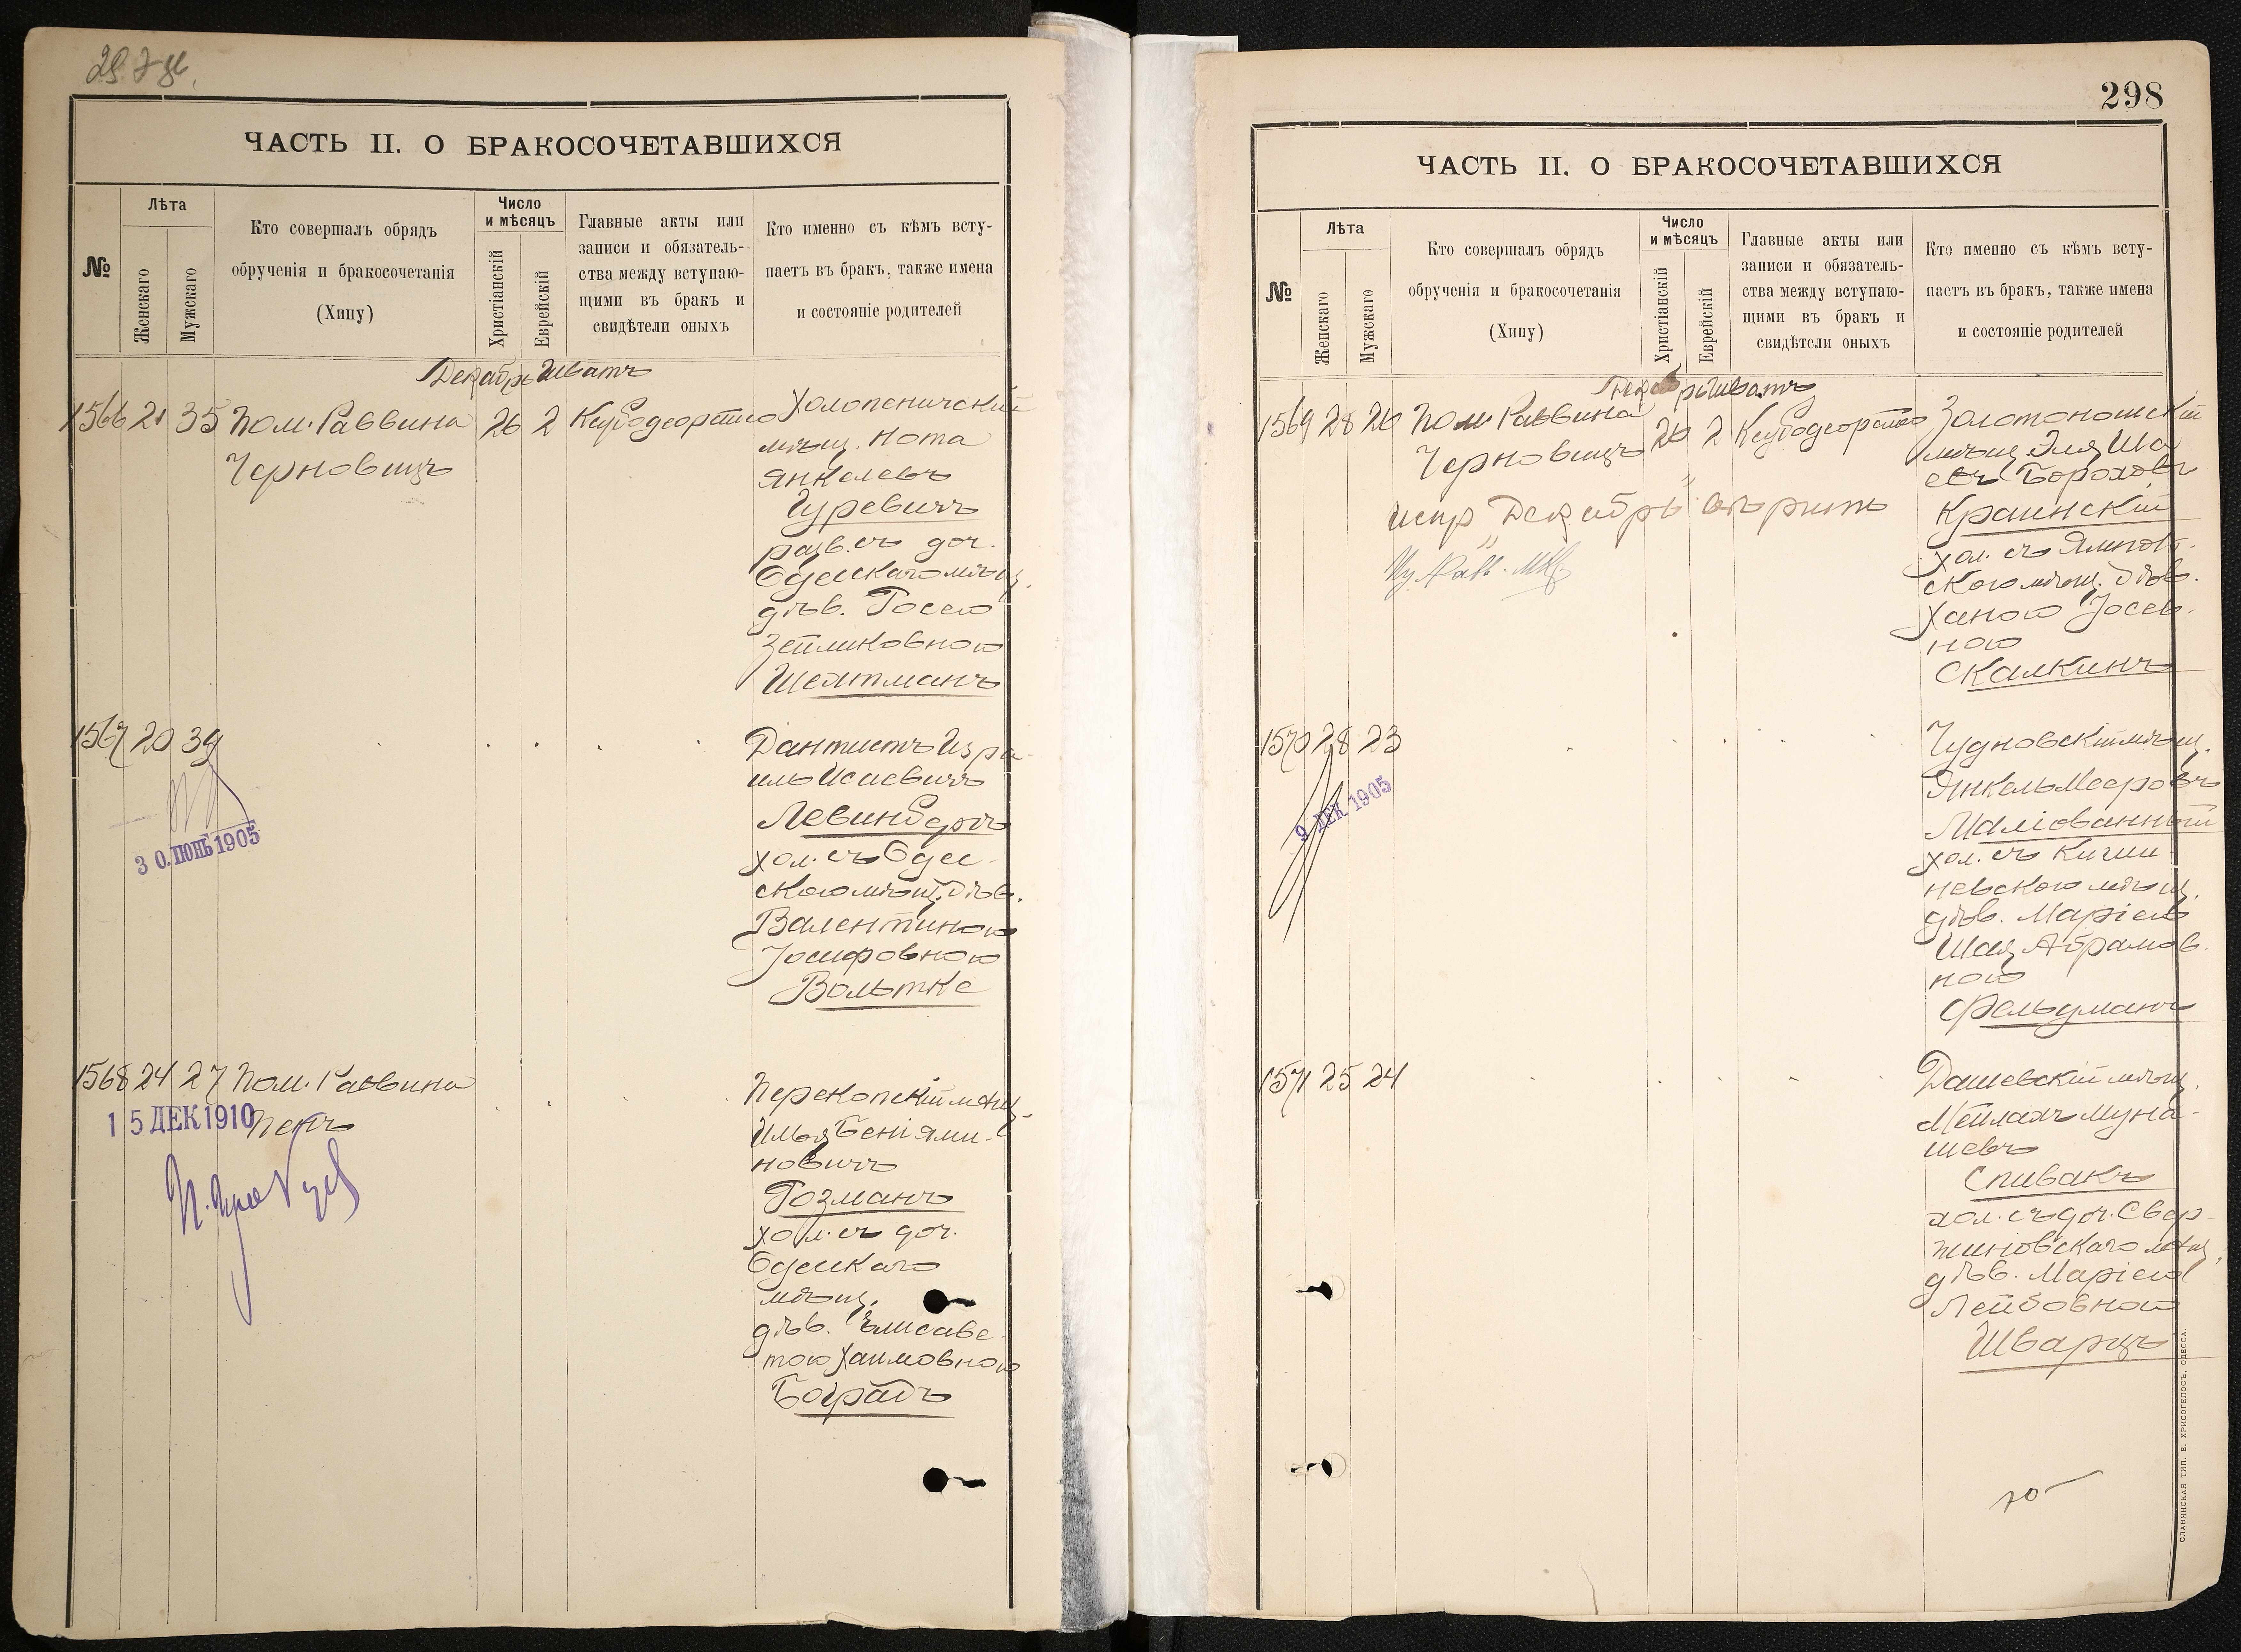 ЧАСТЬ II. О БРАКОСОЧЕТАВШИХСЯ
№
Лѣта
Женскаго
Мужскаго
Кто совершалъ обрядъ
обрученія и бракосочетанія
(Хипу)
Число
и мѣсяцъ
Христіанскій
Еврейскій
Главные акты или
записи и обязатель-
ства между вступаю-
щими въ бракъ и
свидѣтели оныхъ
Кто именно съ кѣмъ всту-
паетъ въ бракъ, также имена
и состояніе родителей
Декабрь Шватъ
1566 21 35 Пом. Раввина 26 2
Черновицъ
Холопеничскій
мѣщ. Нота
Янкелевъ
Гуревичъ
разв. съ доч.
Одесскаго мѣщ.
дѣв. Росею
Зейликовною
Шейтманъ
1567 20 39
30. ІЮНЬ 1905
Дантистъ Изра-
иль Исаевичъ
Левинбергъ
хол. съ Одес-
скою мѣщ. дѣв.
Валентиною
Іосифовною
Вольтке
1568 24 27 Пом. Раввина
Пенъ
15 ДЕК 1910
Перекопскій мѣщ.
Илья Беніями-
новичъ
Розманъ
хол. съ доч.
Одесскаго
мѣщ.
дѣв. Елисаве-
тою Хаимовною
Боградъ
298
ЧАСТЬ II. О БРАКОСОЧЕТАВШИХСЯ
№
Лѣта
Женскаго
Мужскаго
Кто совершалъ обрядъ
обрученія и бракосочетанія
(Хипу)
Число
и мѣсяцъ
Христіанскій
Еврейскій
Главные акты или
записи и обязатель-
ства между вступаю-
щими въ бракъ и
свидѣтели оныхъ
Кто именно съ кѣмъ всту-
паетъ въ бракъ, также имена
и состояніе родителей
Декабрь Шватъ
1569 28 26 Пом. Раввина 26 2
Черновицъ
испр „Декабрь" вѣрить
Золотоношскій
мѣщ. Эля Ша-
евъ Бороховъ
Краинскій
хол. съ Ямпол-
скою мѣщ. дѣв.
Ханою Іосев-
ною
Скалкинъ
1570 28 23
9 ДЕК 1905
Чудновскій мѣщ.
Янкель Мееровъ
Маліованный
хол. съ Киши-
невскою мѣщ.
дѣв. Маріею
Шая Абрамов-
ною
Фельдманъ
1571 25 24
Дашевскій мѣщ.
Мейлахъ Муна-
шевъ
Спивакъ
хол. съ доч. Свер-
жиновскаго мѣщ.
дѣв. Маріею
Лейбовною
Шварцъ
СЛАВЯНСКАЯ ТИП. Е. ХРИСОГЕЛОСЪ, ОДЕССА.